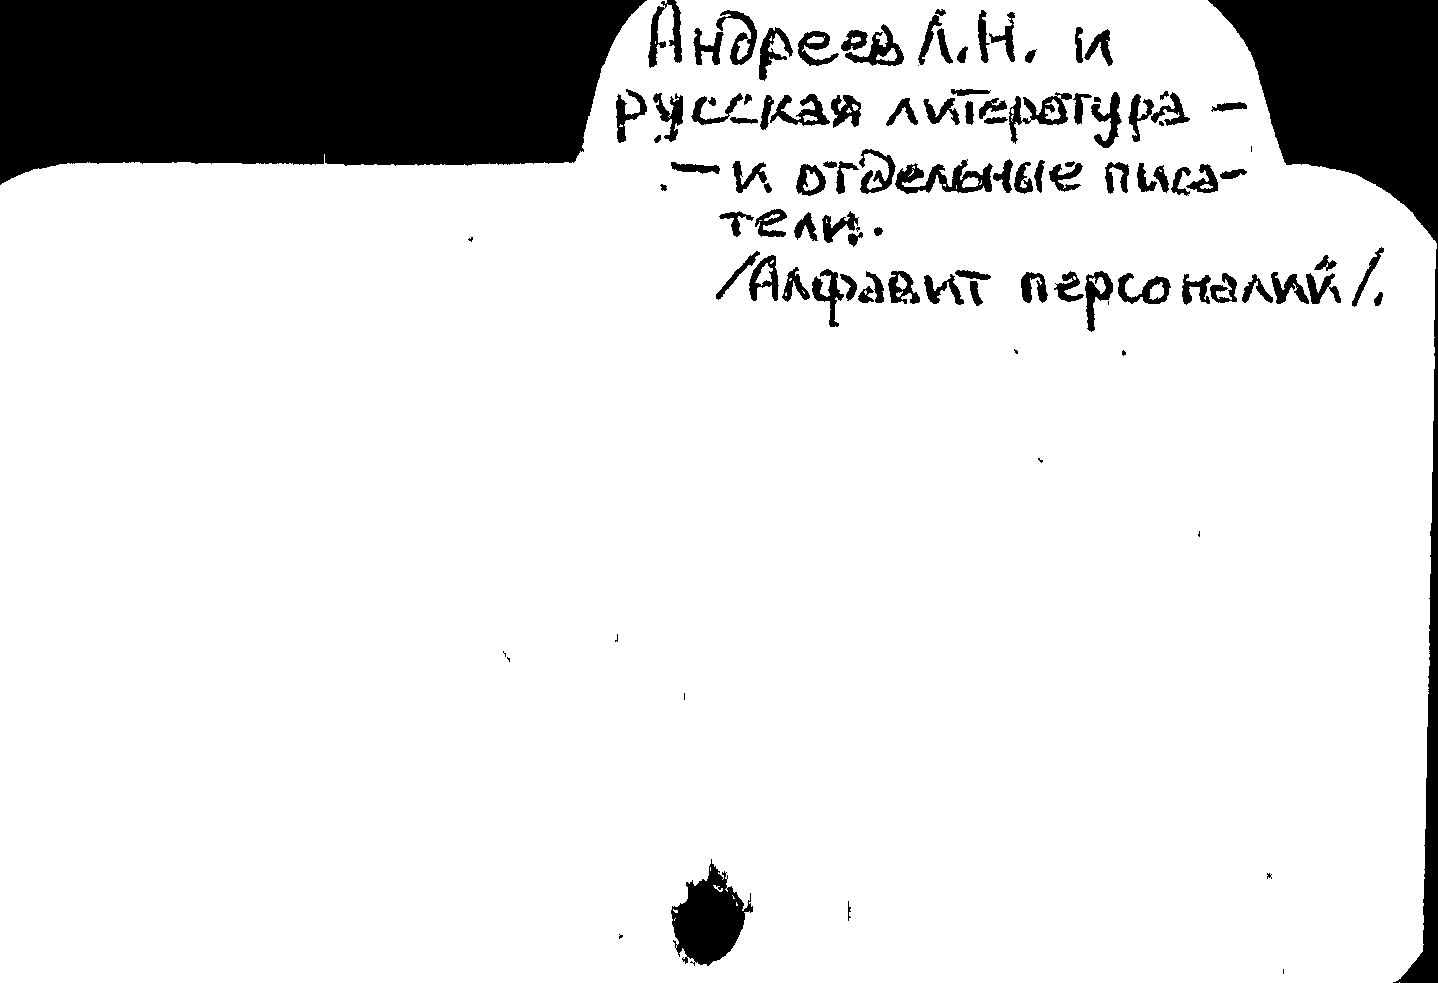 Андреев Л.Н. и
русская литература –
– и отдельные писа-
тели.
/Алфавит персоналий/.